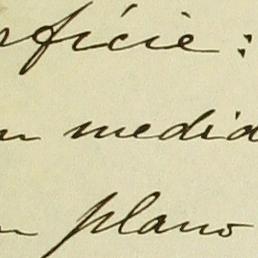 rfície:
n medid
n plano